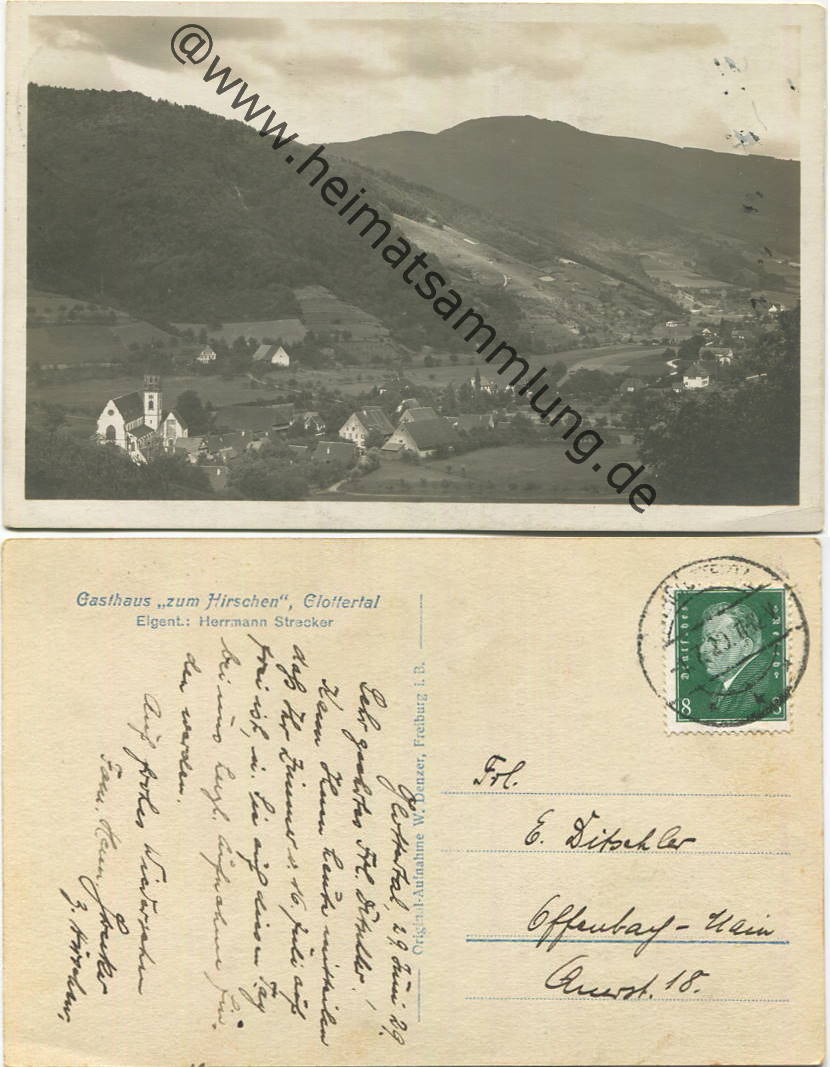 @www.heimatsammlung.de
Gasthaus „zum Hirschen“, Glottertal
Eigent.: Herrmann Strecker
Original-Aufnahme W. Denzer, Freiburg i. B.
Deutsches Reich
8 8
Glottertal, 29. Juni 29.
Sehr geehrtes Frl. Ditschler!
Kann Ihnen heute mitteilen
daß Ihr Zimmer v. 16. Juli auf
frei ist, u. Sie auf diesen Tag
bei uns herzl. Aufnahme fin-
den werden.
Auf frohes Wiedersehn
Fam. Herm. Strecker
z. Hirschen.
Frl.
E. Ditschler
Offenbach-Main
18.